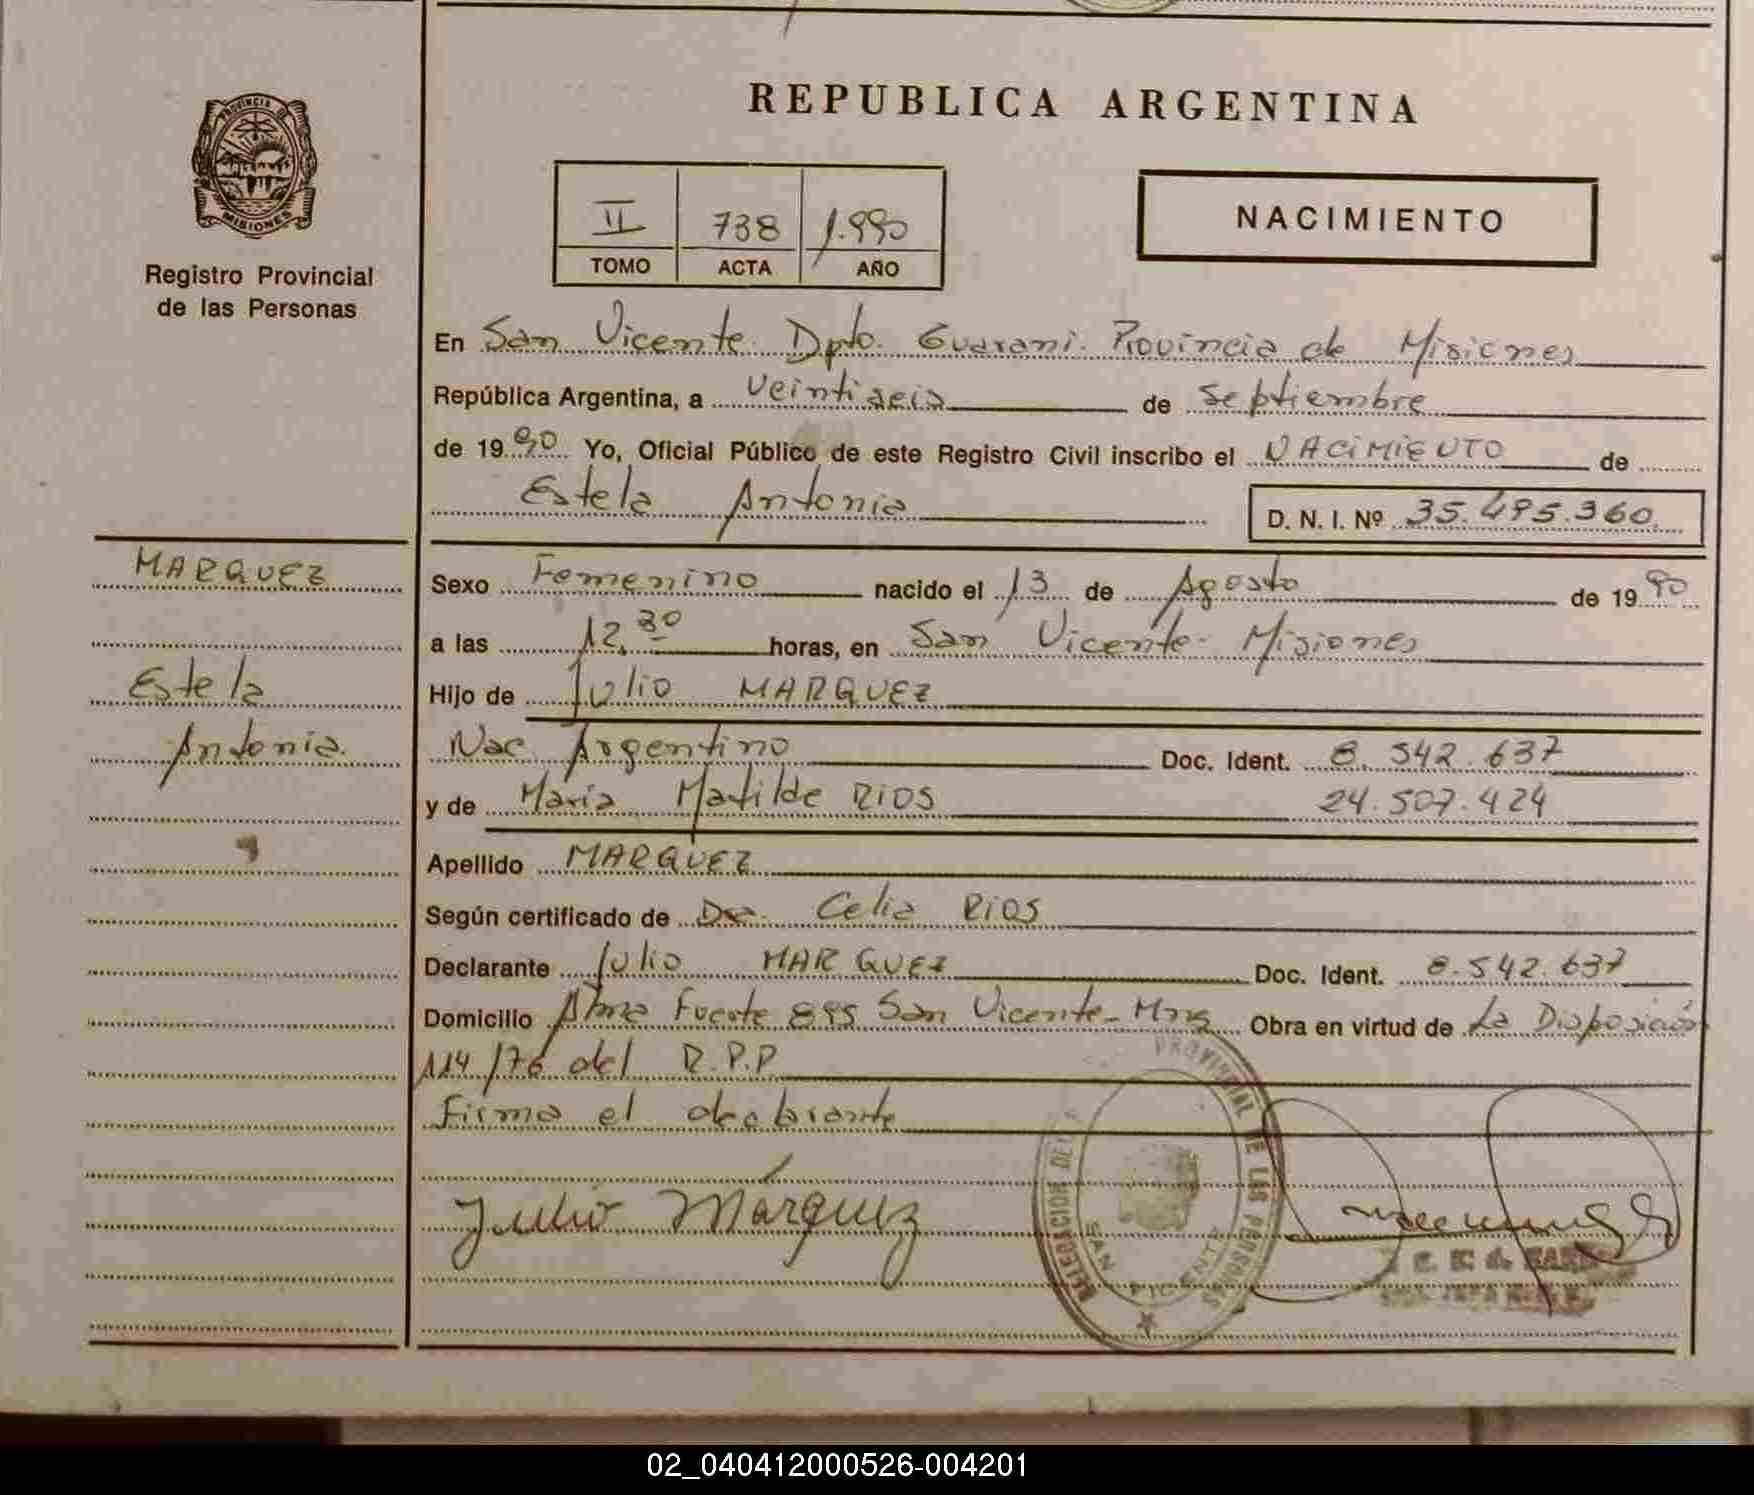 REPUBLICA ARGENTINA
PROVINCIA DE
MISIONES
Registro Provincial
de las Personas
II 738 1.990
TOMO ACTA AÑO
NACIMIENTO
En San Vicente Dpto. Guarani. Provincia de Misiones
República Argentina, a veintiseis de Septiembre
de 1990 Yo, Oficial Público de este Registro Civil inscribo el NACIMIENTO de
Estela Antonia D. N. I. Nº 35.495.360.
MARQUEZ
Estela
Antonia.
Sexo Femenino nacido el 13 de Agosto de 1990
a las 12,30 horas, en San Vicente - Misiones
Hijo de Julio MARQUEZ
Nac. Argentino Doc. Ident. 8.542.637
y de María Matilde RIOS 24.507.424
Apellido MARQUEZ
Según certificado de Celia RIOS
Declarante Julio MARQUEZ Doc. Ident. 8.542.637
Domicilio Fuerte 895 San Vicente - Mnes Obra en virtud de La Disposición
114/76 del R.P.P
Firma el declarante
Julio Márquez
PROVINCIAL DE LAS PERSONAS
SAN VICENTE
02_040412000526-004201